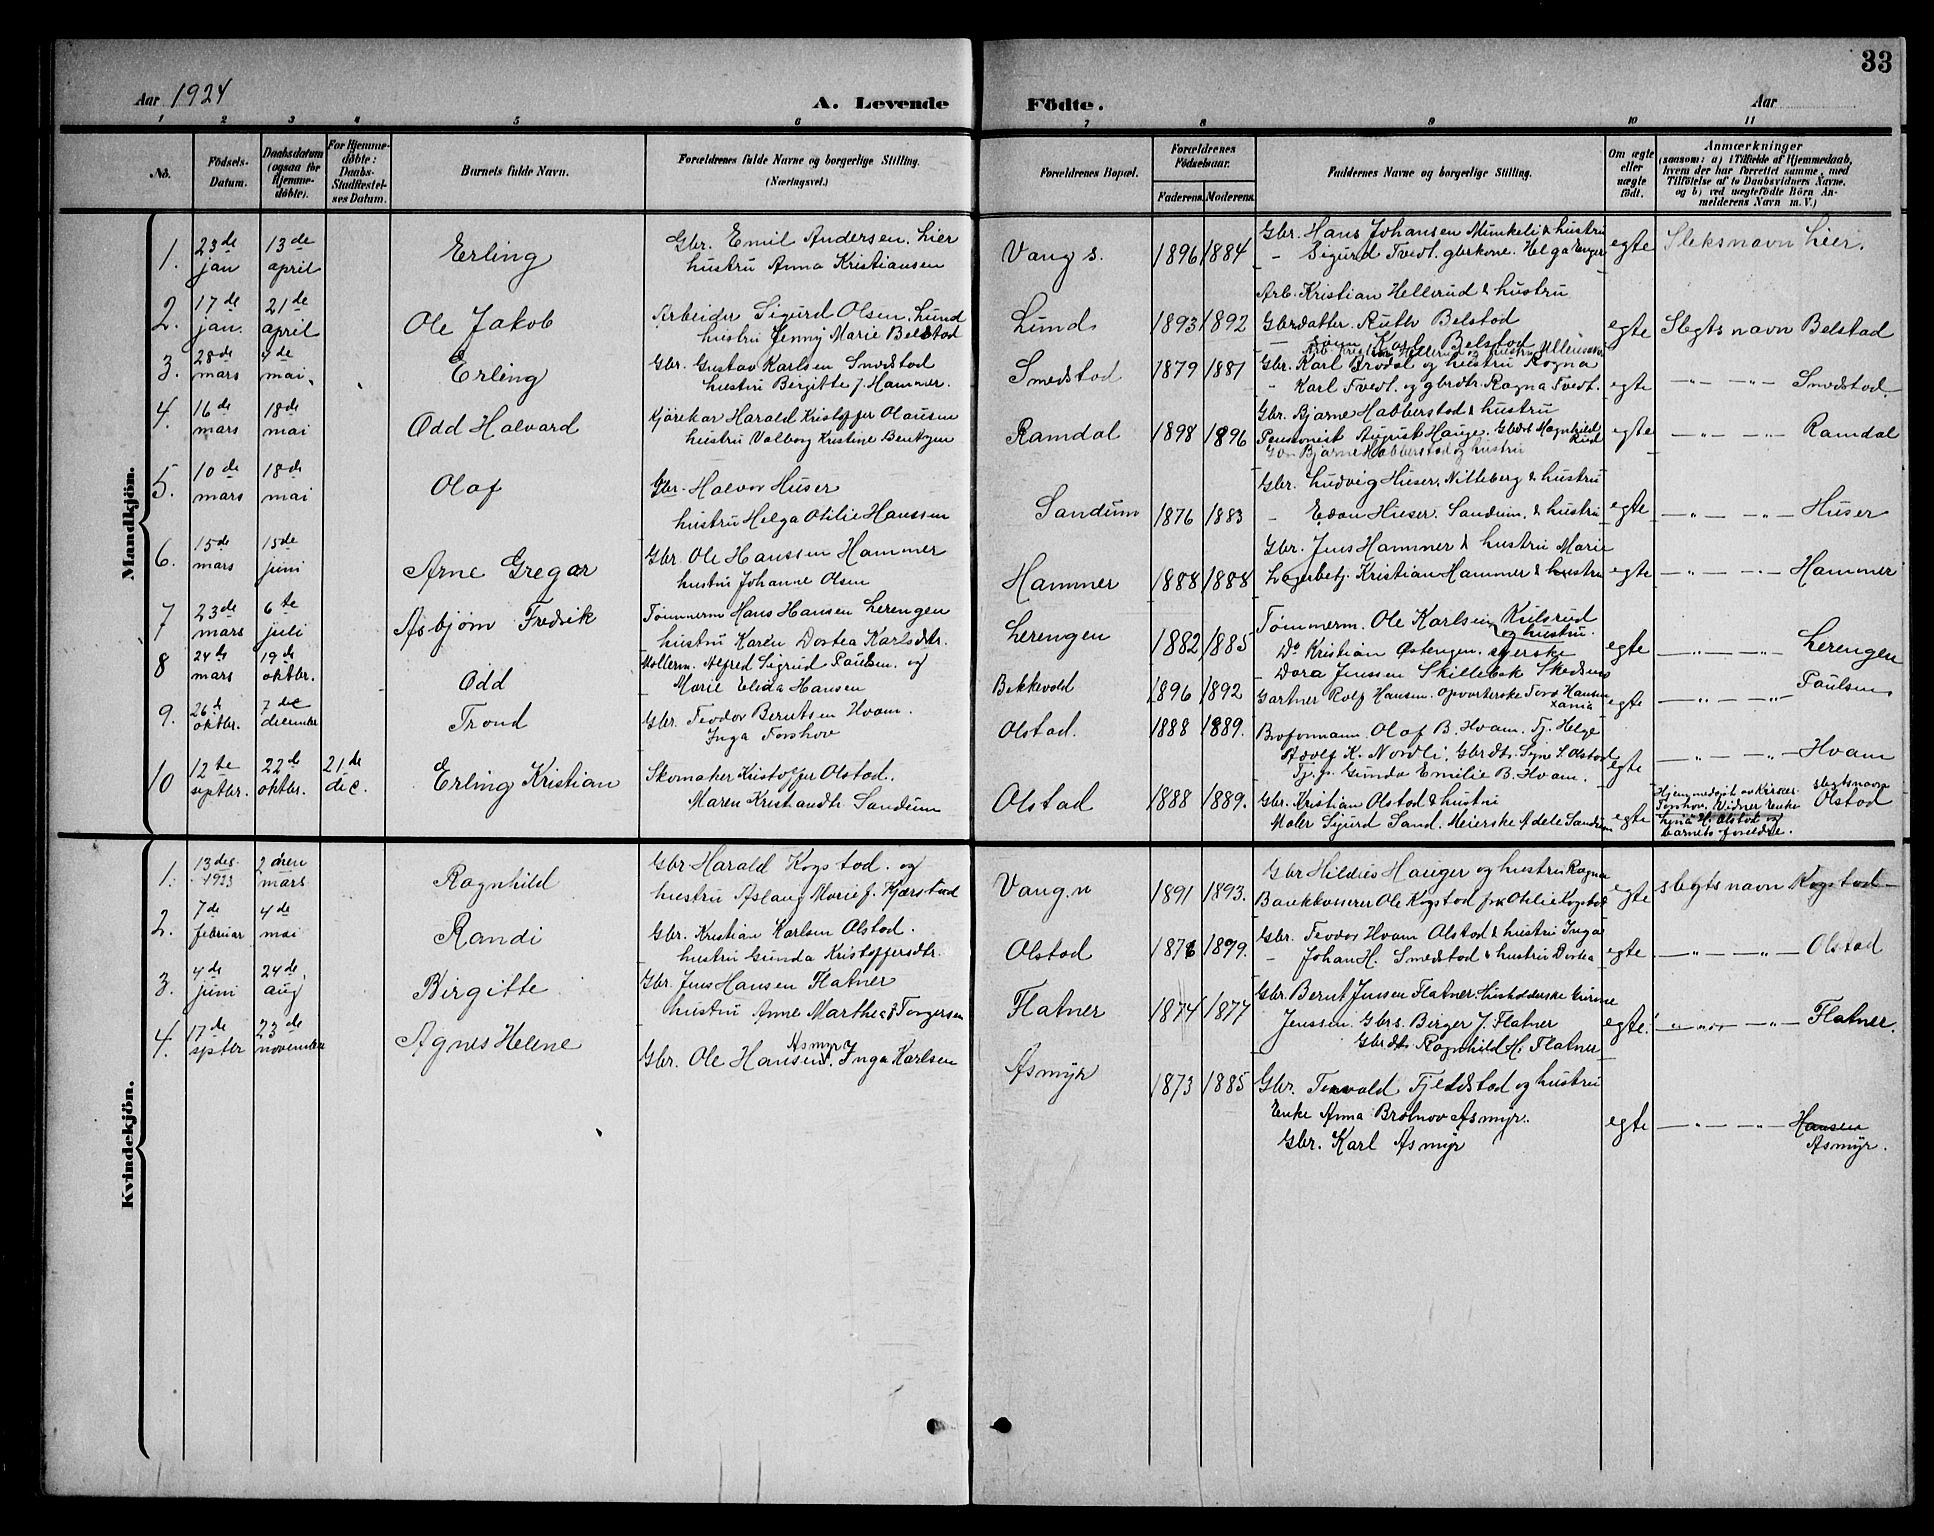 33
Aar 1924
A. Levende Födte.
Aar
1 2 3 4 5 6 7 8 9 10 11
No.
Födsels-Datum.
Daabsdatum (ogsaa for Hjemmedøbte).
For Hjemmedøbte: Daabs-Stadfæstelses Datum.
Barnets fulde Navn.
Forældrenes fulde Navne og borgerlige Stilling. (Næringsvei.)
Forældrenes Bopæl.
Forældrenes Födselsaar.
Faderens. Moderens.
Faddernes Navne og borgerlige Stilling.
Om ægte eller uægte födt.
Anmærkninger (saasom: a) i Tilfælde af Hjemmedaab, hvem der har forrettet samme, med Tilföielse af to Daabsvidners Navne, og b) ved uægtefödte Börn Anmelderens Navn m. V.)
Mandkjön.
1. 23de jan 13de april Erling
Gbr. Emil Andersen. Lier
hustru Anna Kristiansen
Vang s. 1896 1884
Gbr. Hans Johansen Munkeli & hustru
- Sigurd Tvedt. gbrkone. Helga Enger
egte Sleksnavn Lier.
2. 17de jan. 21de april Ole Jakob
Arbeider Sigurd Olsen. Lund
hustru Jenny Marie Belstad
Lund 1893 1892
Arb. Kristian Hellerud & hustru
Gbrdatter. Ruth Belstod
- søn Karl Belstod
egte Slegtsnavn Belstad
3. 28de mars 4de mai. Erling
Gbr. Gustav Karlsen Smedstod
hustru Birgitte J. Hammer.
Smedstod 1879 1881
Gbr. Karl Brodal og hustru Ragna
- Karl Tvedt. og gbrdtr. Ragna Tvedt.
egte -"- -"- Smedstod.
4. 16de mars 18de mai Odd Halvard
Kjørekar Harald Kristoffer Olausen
hustru Valborg Kristine Bentzen
Ramdal 1898 1896
Gbr. Bjarne Habberstod & hustru
Pensionist August Hauge. Gbdt Magnhild Rud
Gbr Bjarne Habberstod og hustru
egte -"- -"- Ramdal
5. 10de mars 18de mai Olaf
Gbr. Halvor Huser
hustru Helga Otilie Hanssen
Sandum 1876 1883
Gbr. Ludvig Huser, Nitteberg & hustru
- Edon Huser. Sandum. & hustru
egte -"- -"- Huser
6. 15de mars 15de juni Arne Gregar
Gbr Ole Hanssen Hammer
hustru Johanne Olsen
Hammer 1888 1888
Gbr. Jens Hammer & hustru Marie
Lagerbetj. Kristian Hammer & hustru
egte -"- -"- Hammer
7 23de mars 6te juli Asbjørn Fredrik
Tømmerm Hans Hansen Lerengen
hustru Karen Dortea Karlsdtr.
Lerengen 1882 1885
Tømmerm. Ole Karlsen Kulsrud og hustru.
Do Kristian Østengen. syerske
Dora Jenssen Skillebek Skedsmo
egte -"- -"- Lerengen
8 24de mars 19de oktbr. Odd
Møllerm. Alfred Sigrud Paulsen. og
Marie Elida Hansen
Bekkevold 1896 1892
Gartner Rolf Hansen. opvarterske Tora Hansen Xania
egte -"- -"- Paulsen
9. 26de oktbr. 7de december Trond
Gbr. Teodor Berntsen Hvam.
Inga Torshov
Olstad. 1888 1889.
Broformann. Olaf B. Hvam. Tj. Helge
Rdolf K. Nordli, Gbrdtr. Syne S. Olstad
Tj. p. Gunda Emilie B. Hvam.
egte -"- -"- Hvam
10 12te septbr. 22de oktbr. 21de dec. Erling Kristian
Skomaker Kristoffer Olstad.
Maren Kristiandtr. Sandum
Olstad 1888 1889.
Gbr. Kristian Olstad & hustru
Maler Sigurd Sand. Meierske Adele Sandum
egte Hjemmedøpt av Kirkes. Torshov. Vidner Enke Lina H. Olstad og barnets foreldre. slegtsnavn Olstad
Kvindekjön.
1. 13 des. 1923 2den mars Ragnhild
Gbr Harald Kogstad. og
hustru Aslaug Marie J. Kjærstad
Vang. n 1891 1893.
Gbr Hildius Hauger og hustru Ragna
Bankkasserer Ole Kogstad frk Otilie Kogstad
egte slegtsnavn Kogstad
2. 7de februar 4de mai Randi
Gbr. Kristian Karlsen Olstad.
hustru Gunda Kristoffersdtr.
Olstad 1876 1879.
Gbr. Teodor Hvam Olstad & hustru Inga
- Johan H. Smedstod & hustru Dortea
egte -"- -"- Olstad
3. 4de juni 24de aug Birgitte
Gbr. Jens Hansen Flatner
hustru Anne Marthea Torgersen
Flatner 1874 1877
Gbr. Bernt Jensen Flatner. Husholderske Gurine
Jenssen. Gbrs. Birger J. Flatner
Gbrdtr. Ragnhild H. Flatner
egte. -"- -"- Flatner.
4. 17de spter 23de november Agnes Helene
Gbr. Ole Hansen Asmyr, Inga Karlsen
Asmyr 1873 1885
Gbr. Torvald Fjeldstad og hustru
Enke Anna Brobnov Asmyr.
Gbr. Karl Asmyr
egte -"- -"- Hansen
Asmyr.